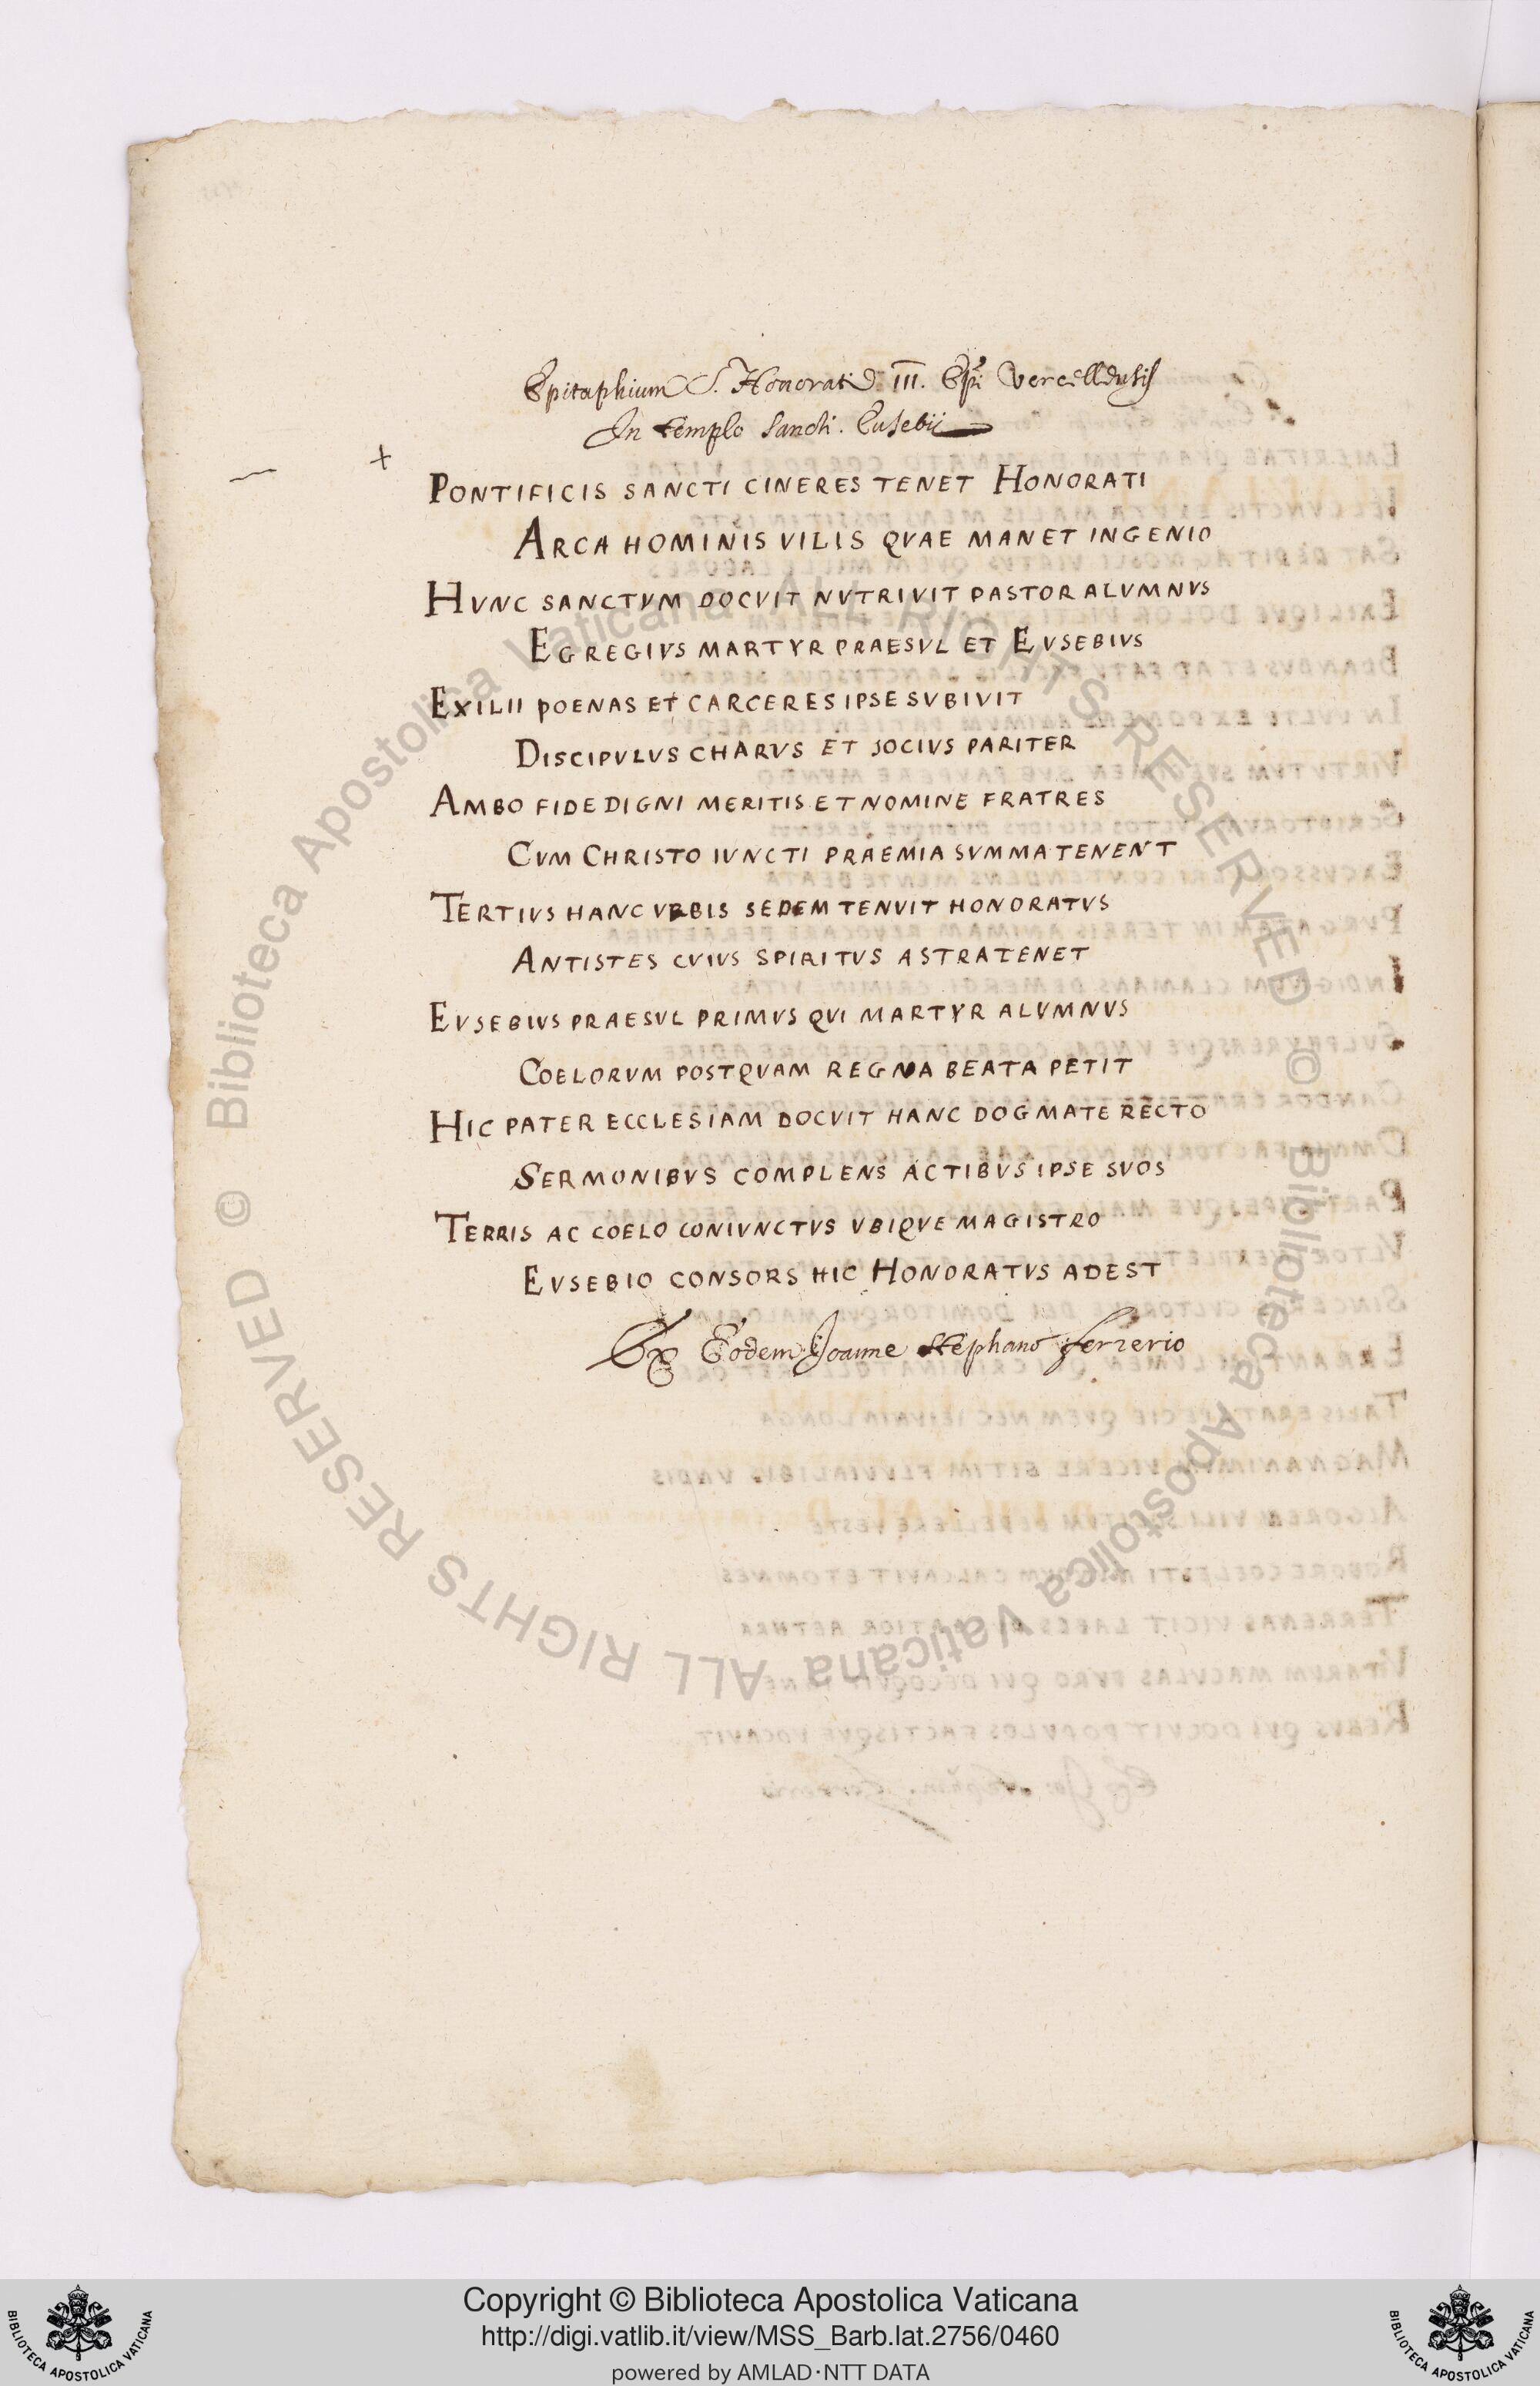 Epitaphium S. Honorati III. Epi Vercellensis
In templo Sancti. Eusebii
PONTIFICIS SANCTI CINERES TENET HONORATI
ARCA HOMINIS VILIS QVAE MANET INGENIO
HVNC SANCTVM DOCVIT NVTRIVIT PASTOR ALVMNVS
EGREGIVS MARTYR PRAESVL ET EVSEBIVS
EXILII POENAS ET CARCERES IPSE SVBIVIT
DISCIPVLVS CHARVS ET SOCIVS PARITER
AMBO FIDE DIGNI MERITIS ET NOMINE FRATRES
CVM CHRISTO IVNCTI PRAEMIA SVMMA TENENT
TERTIVS HANC VRBIS SEDEM TENVIT HONORATVS
ANTISTES CVIVS SPIRITVS ASTRA TENET
EVSEBIVS PRAESVL PRIMVS QVI MARTYR ALVMNVS
COELORVM POSTQVAM REGNA BEATA PETIT
HIC PATER ECCLESIAM DOCVIT HANC DOGMATE RECTO
SERMONIBVS COMPLENS ACTIBVS IPSE SVOS
TERRIS AC COELO CONIVNCTVS VBIQVE MAGISTRO
EVSEBIO CONSORS HIC HONORATVS ADEST
Ex Eodem Joanne Stephano ferrerio
© Biblioteca Apostolica Vaticana ALL RIGHTS RESERVED © Biblioteca Apostolica Vaticana ALL RIGHTS RESERVED
Copyright © Biblioteca Apostolica Vaticana
http://digi.vatlib.it/view/MSS_Barb.lat.2756/0460
powered by AMLAD·NTT DATA
BIBLIOTECA APOSTOLICA VATICANA
BIBLIOTECA APOSTOLICA VATICANA